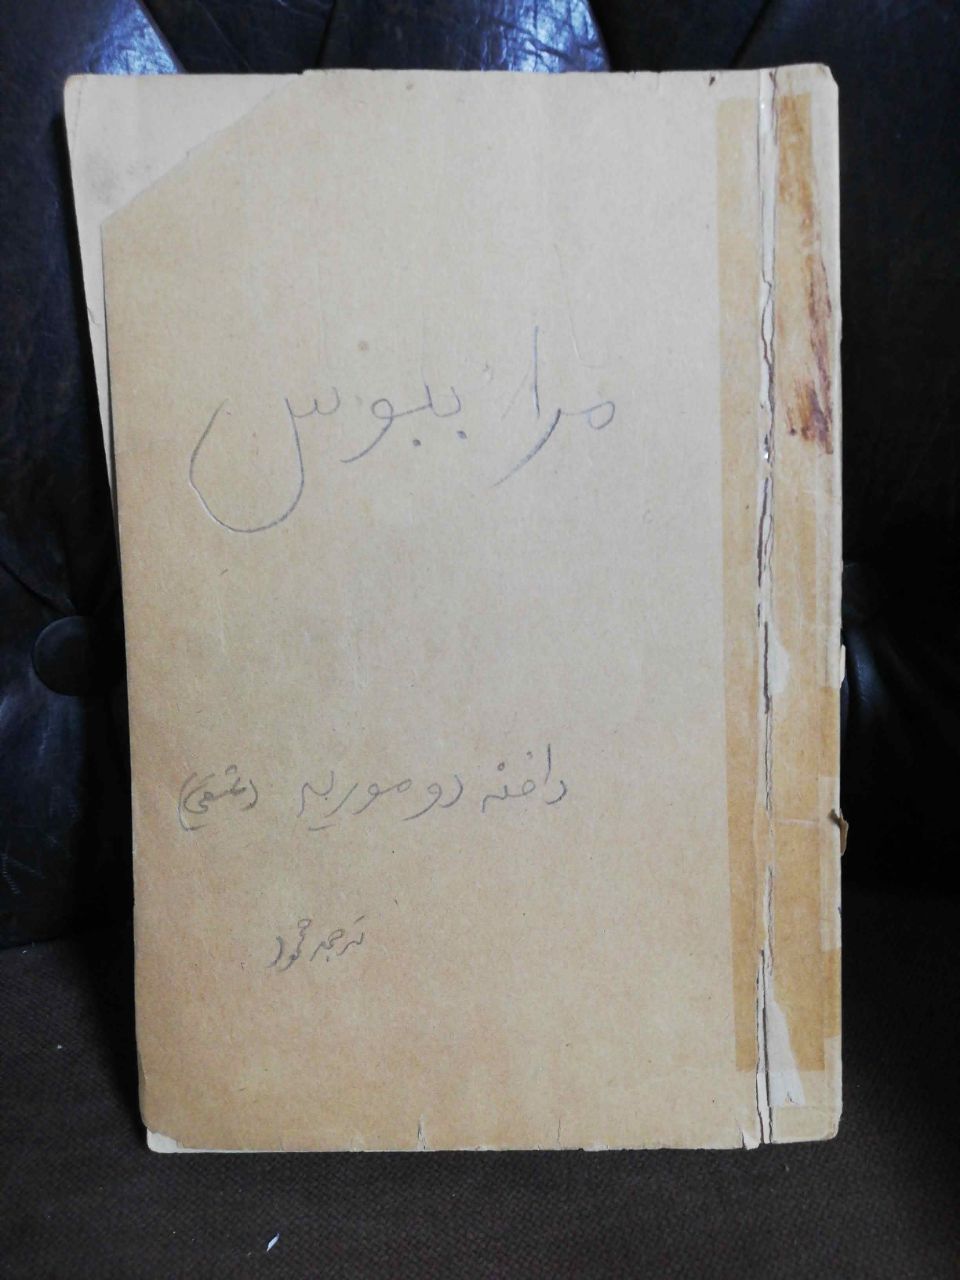 مرا ببوس
دافنه دو موریه (عشقی)
ترجمه محمود